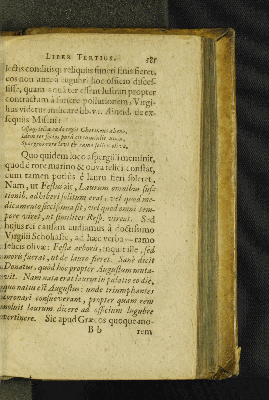 LIBER TERTIUS. 385
lectis conditisq; reliquiis funeri finis fieret,
eos non ante à lugubri hoc officio disces-
sisse, quam aqua ter essent lustrati propter
contractam à funere pollutionem, Virgi-
lius videtur indicare lib. VI. Æneid. de ex-
sequiis Miseni:
Ossaq; lecta cado texit Chorinæus aheno,
Idem ter socios pura circumtulit unda,
Spargens rore levi & ramo felicis olivæ.
Quo quidem loco aspergilli meminit,
quod è rore marino & oliva felici constat,
cum tamen potius è lauro fieri soleret,
Nam, ut Festus ait, Laurum omnibus suffi-
tionib. adhiberi solitum erat; vel quod me-
dicamento siccissima sit, vel quod omni tem-
pore viret, ut similiter Resp. vireat. Sed
hujus rei causam audiamus à doctissimo
Virgilii Scholiaste, ad hæc verba — ramo
felicis olivæ: Festa arboris, inquit ille, sed
morii fuerat, ut de lauro fieret. Sanè dicit
Donatus, quod hoc propter Augustum muta-
vit. Nam nata erat laurus in palatio eo die,
quo natus est Augustus: unde triumphantes
coronari consueverant, propter quam rem
noluit laurum dicere ad officium lugubre
pertinere. Sic apud Græcos quoque mo-
B b rem